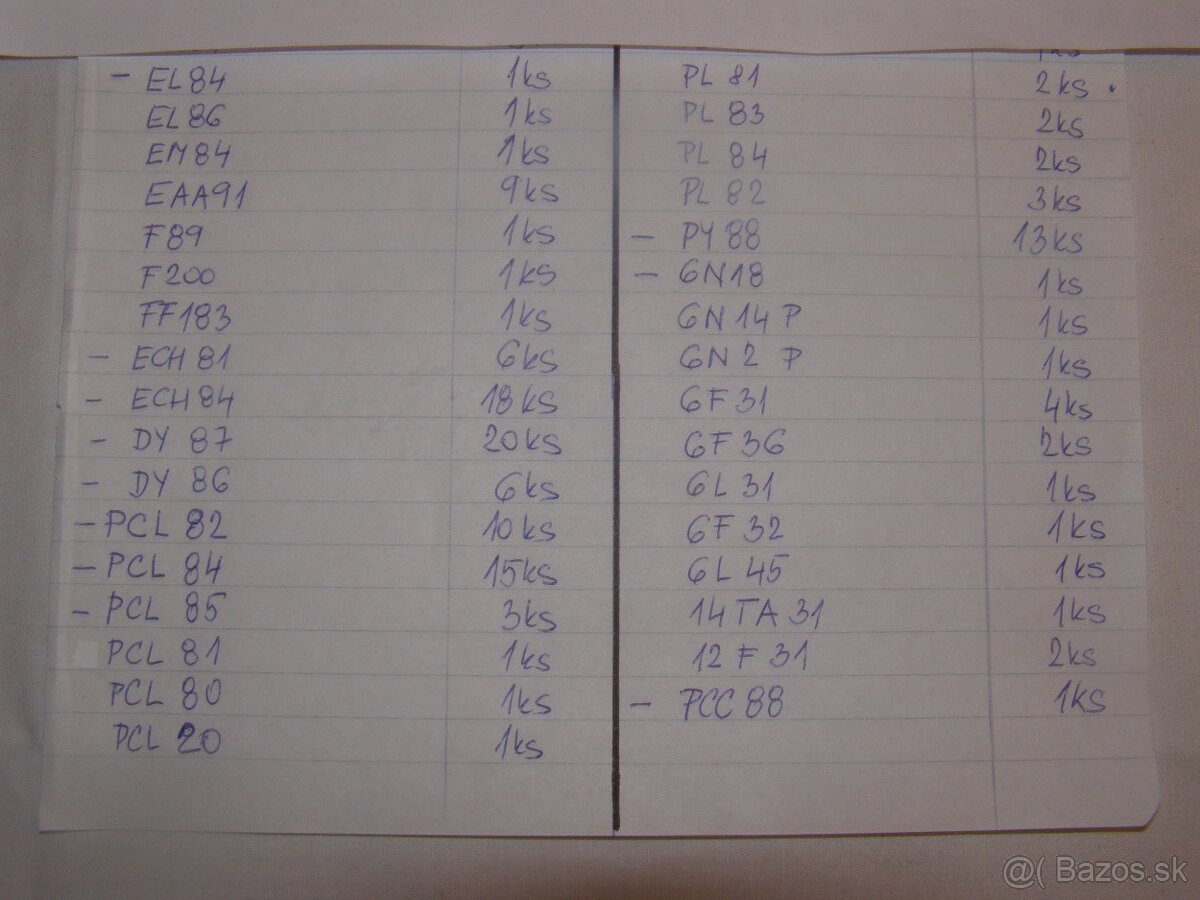 - EL 84 1ks
EL 86 1ks
EM 84 1ks
EAA91 9ks
F 89 1ks
F 200 1ks
FF183 1ks
- ECH 81 6ks
- ECH 84 18ks
- DY 87 20ks
- DY 86 6ks
- PCL 82 10ks
- PCL 84 15ks
- PCL 85 3ks
PCL 81 1ks
PCL 80 1ks
PCL 20 1ks
1ks
PL 81 2ks.
PL 83 2ks
PL 84 2ks
PL 82 3ks
- PY 88 13ks
- 6N18 1ks
6N 14 P 1ks
6N 2 P 1ks
6F 31 4ks
6F 36 2ks
6L 31 1ks
6F 32 1ks
6L 45 1ks
14TA 31 1ks
12 F 31 2ks
- PCC 88 1ks
@( Bazos.sk